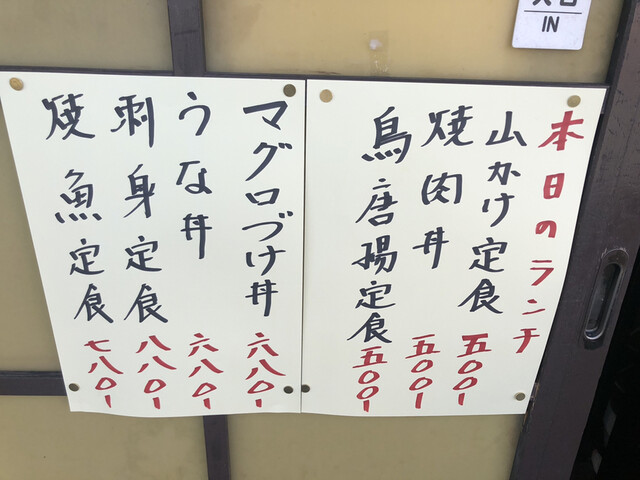 本日のランチ
山かけ定食 五〇〇-
焼肉丼 五〇〇-
鳥唐揚定食 五〇〇-
マグロづけ丼 六八〇-
うな丼 六八〇-
刺身定食 八八〇-
焼魚定食 七八〇-
入口
IN